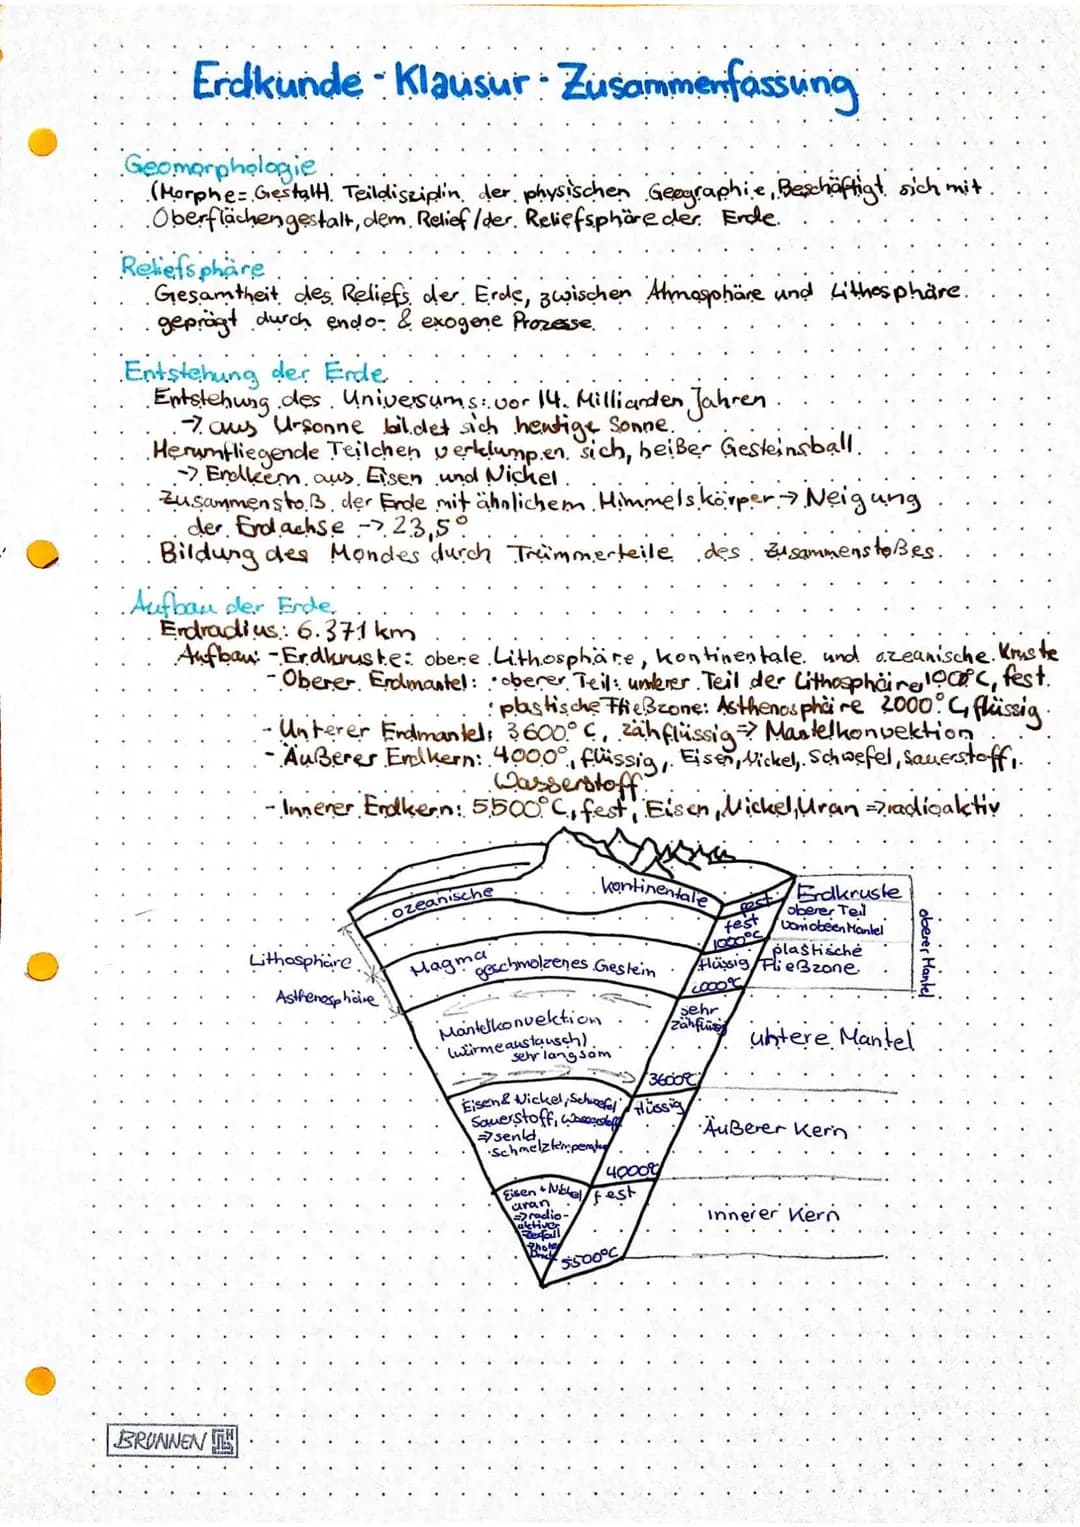 Erdkunde - Klausur - Zusammenfassung
Geomorphologie
(Morphe = Gestalt), Teildisziplin der physischen Geographie, Beschäftigt sich mit
Oberflächengestalt, dem Relief / der Reliefsphäre der Erde.
Reliefsphäre
Gesamtheit des Reliefs der Erde, zwischen Atmosphäre und Lithosphäre.
geprägt durch endo- & exogene Prozesse.
Entstehung der Erde
Entstehung des Universums: vor 14. Milliarden Jahren
-> aus Ursonne bildet sich heutige Sonne.
Herumfliegende Teilchen verklumpen sich, heißer Gesteinsball.
-> Erdkern aus Eisen und Nickel
Zusammenstoß der Erde mit ähnlichem Himmelskörper -> Neigung
der Erdachse -> 23,5°
Bildung des Mondes durch Trümmerteile des Zusammenstoßes.
Aufbau der Erde
Erdradius: 6.371 km
Aufbau: - Erdkruste: obere Lithosphäre, kontinentale und ozeanische Kruste
- Oberer Erdmantel: • oberer Teil: unterer Teil der Lithosphäre, 1000°C, fest.
• plastische Fließzone: Asthenosphäre 2000°C, flüssig
- Unterer Erdmantel: 3600°C, zähflüssig => Mantelkonvektion
- Äußerer Erdkern: 4000°, flüssig, Eisen, Nickel, Schwefel, Sauerstoff,
Wasserstoff
- Innerer Erdkern: 5500°C, fest, Eisen, Nickel, Uran => radioaktiv
ozeanische
kontinentale
fest
Erdkruste
fest
1000°C
oberer Teil
vom oberen Mantel
oberer Mantel
Lithosphäre
Magma
geschmolzenes Gestein
flüssig
2000°C
plastische
Fließzone
Asthenosphäre
Mantelkonvektion
(Wärmeaustausch)
sehr langsam
sehr
zähflüssig
3600°C
untere Mantel
Eisen & Nickel, Schwefel
Sauerstoff, Wasserstoff
=> senkt
Schmelztemperatur
flüssig
4000°C
Äußerer Kern
Eisen + Nickel
Uran
=> radio-
aktiver
Zerfall
fest
5500°C
innerer Kern
BRUNNEN